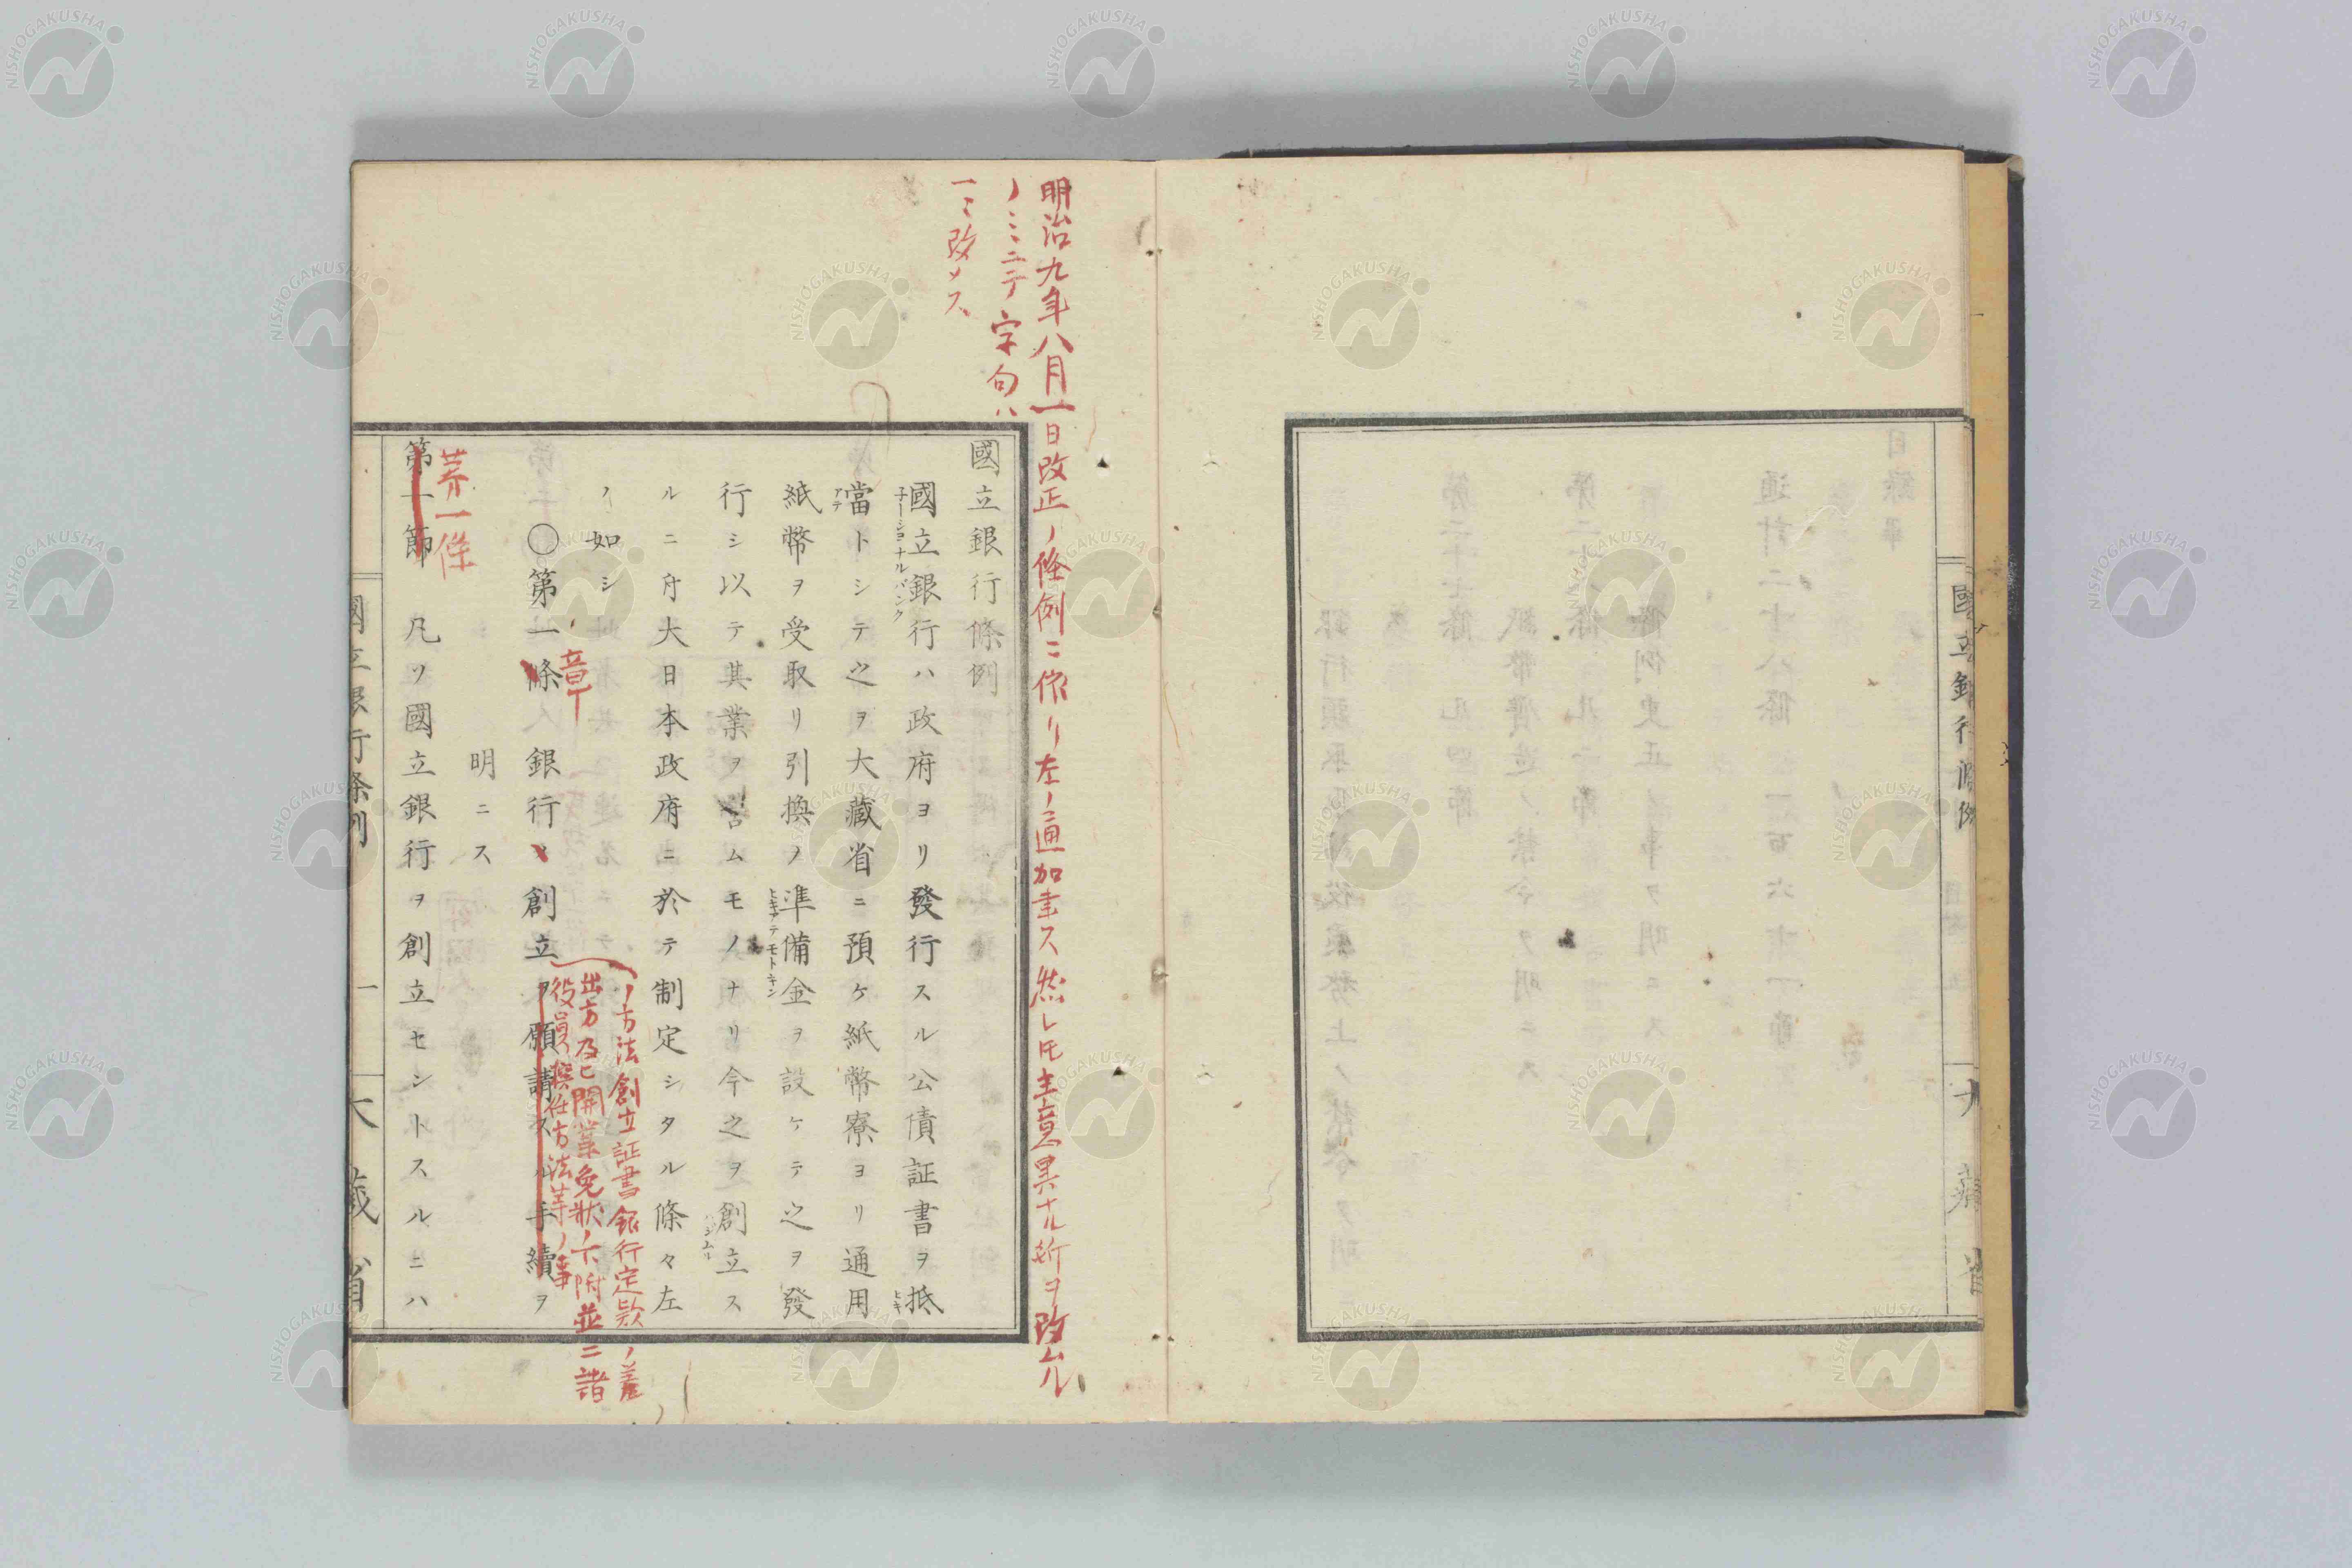 明治九年八月一日改正ノ條例ニ依リ左ノ通加筆ス然レ𪜈主意異ナル所ヲ改ムル
ノミニテ字句ハ
一々改メス
國立銀行條例
國立銀行ハ政府ヨリ發行スル公債証書ヲ抵
ナーショナルバンク
ヒキ
當トシテ之ヲ大藏省ニ預ケ紙幣寮ヨリ通用
アテ
紙幣ヲ受取リ引換ノ準備金ヲ設ケテ之ヲ發
ヒキアテモトキン
行シ以テ其業ヲ営ムモノナリ今之ヲ創立ス
ルニ付大日本政府ニ於テ制定シタル條々左
ノ如シ
ノ方法創立証書銀行定款ノ差
出方及ヒ開業免状ノ下附並ニ諸
役員撰任方法等ノ事
章
〇第一條 銀行ノ創立ヲ願請スル手續ヲ
明ニス
第一條
第一節 凡ソ國立銀行ヲ創立セントスルニハ
國立銀行條例 一 大藏省
NISHOGAKUSHA